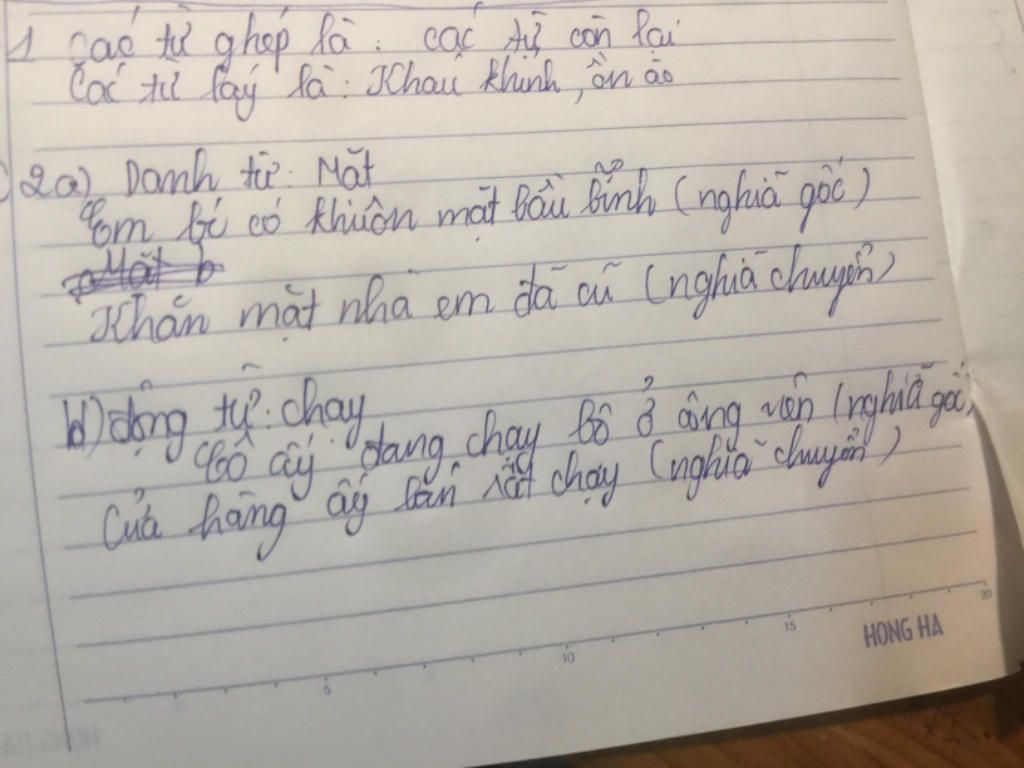 1 Các từ ghép là: các từ còn lại
Các từ láy là: Khấu khỉnh, ồn ào
2a) Danh từ: Mặt
Em bé có khuôn mặt bầu bĩnh (nghĩa gốc)
Khăn mặt nhà em đã cũ (nghĩa chuyển)
b) động từ: chạy
Cô ấy đang chạy bộ ở công viên (nghĩa gốc)
Cửa hàng ấy bán rất chạy (nghĩa chuyển)
5 10 15 20
HONG HA